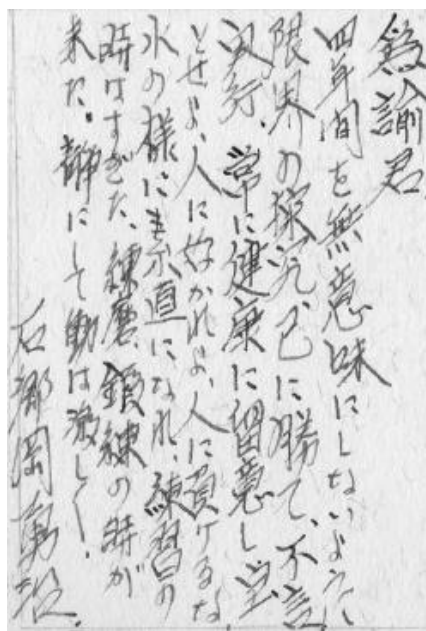 為諭君
四年間を無意味にしないように
限界の探究、己に勝て、不言
実行、常に健康に留意し宝
とせよ、人に好かれよ、人に負けるな
水の様に素直になれ、練習の
時はすぎた、練磨、鍛練の時が
来た。静にして動は激しく。
石郷岡